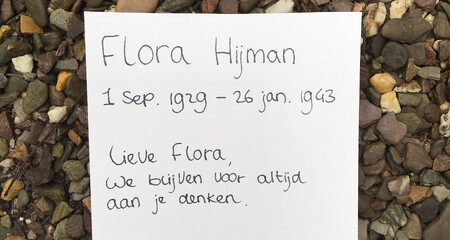 Flora Hijman
1 Sep. 1929 – 26 jan. 1943
Lieve Flora,
We blijven voor altijd
aan je denken.